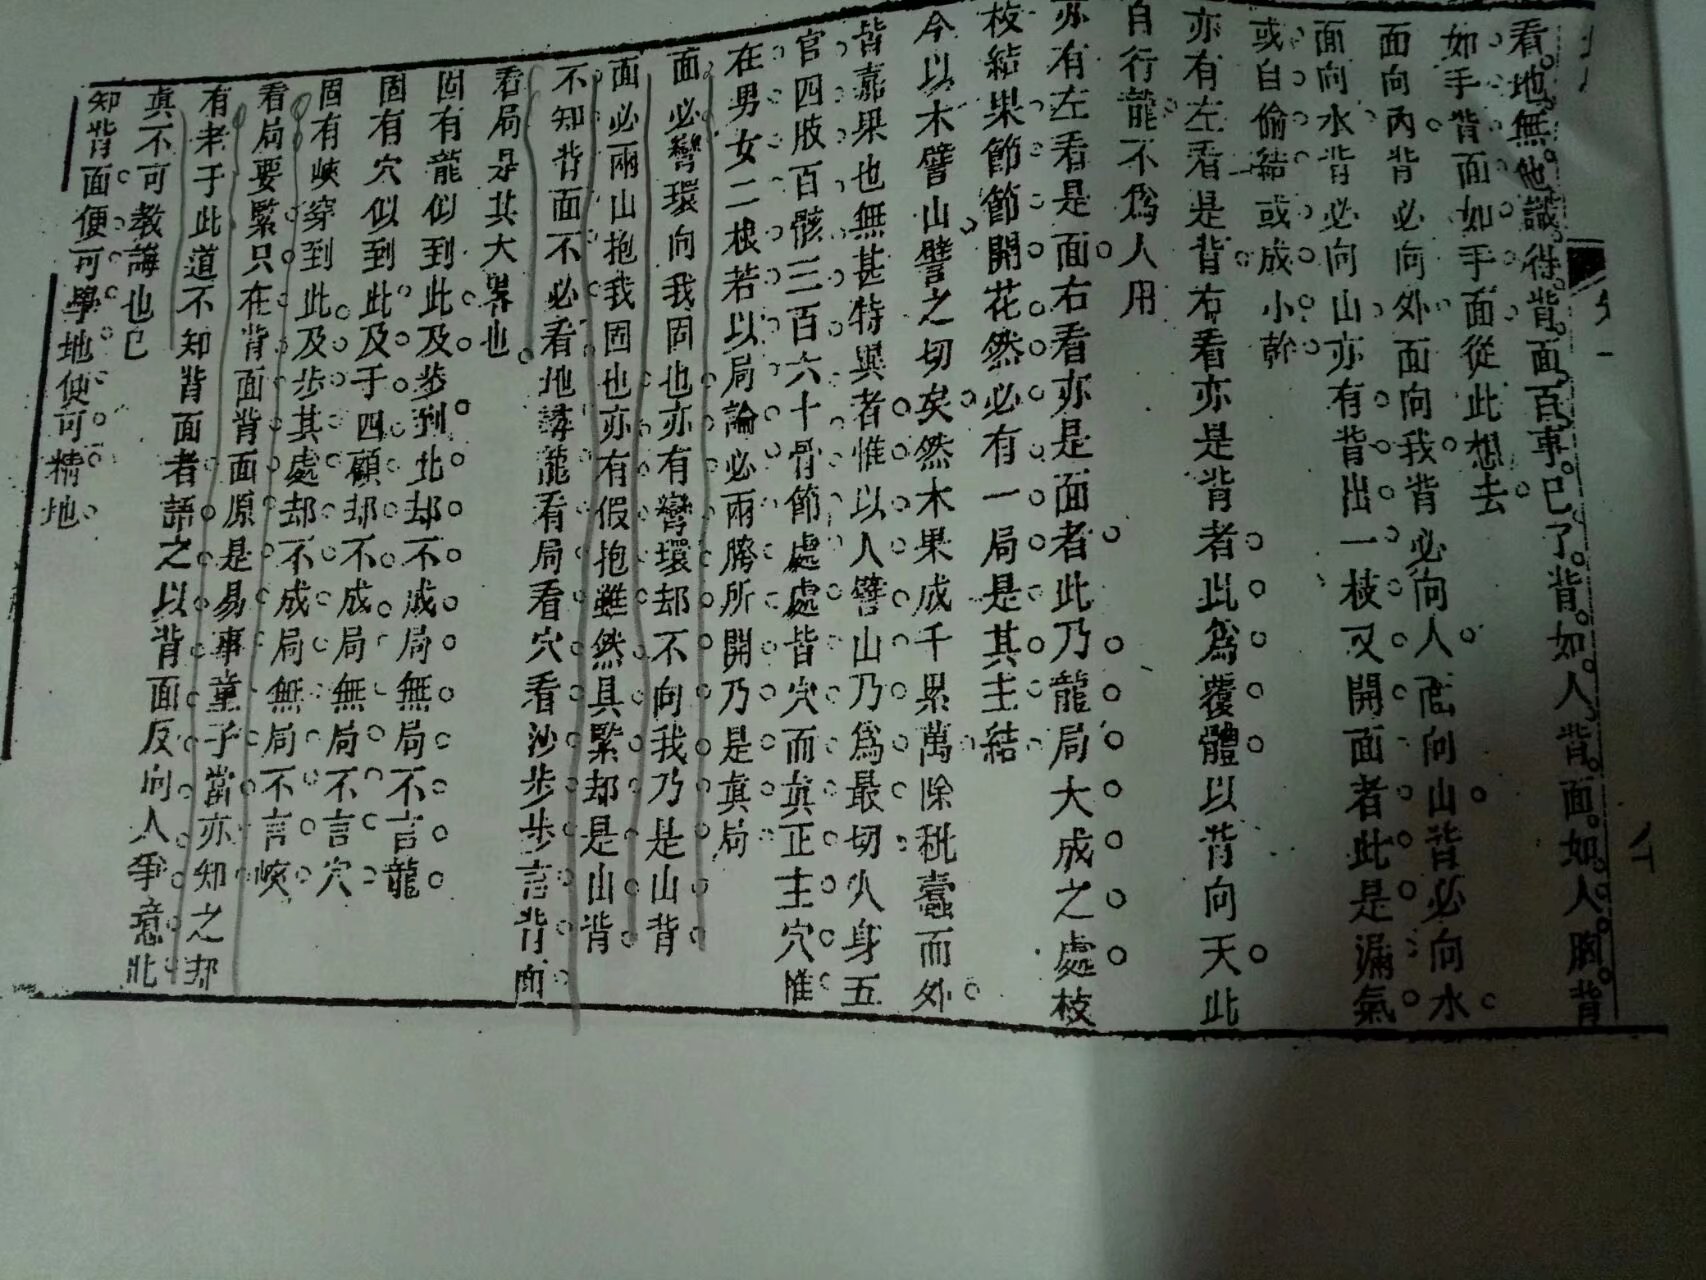 看地無他識得背面百事已了背如人背面如人胸背
如手背面如手面從此想去
面向內背必向外面向我背必向人面向山背必向水
面向水背必向山亦有背出一枝又開面者此是漏氣
或自偷結或成小幹
亦有左看是背右看亦是背者此爲覆體以背向天此
自行龍不爲人用
亦有左看是面右看亦是面者此乃龍局大成之處枝
枝結果節節開花然必有一局是其主結
今以木譬山譬之切矣然木果成千累萬除秕蠹而外
皆嘉果也無甚特異者惟以人譬山乃爲最切人身五
官四肢百骸三百六十骨節處處皆穴而真正主穴惟
在男女二根若以局論必兩胯所開乃是真局
面必彎環向我固也亦有彎環却不向我乃是山背
面必兩山抱我固也亦有假抱雖然具緊却是山背
不知背面不必看地講龍看局看穴看沙步步言背面
看局是其大畧也
固有龍似到此及步到此却不成局無局不言龍
固有穴似到此及于四顧却不成局無局不言穴
固有峽穿到此及步其處却不成局無局不言峽
看局要緊只在背面背面原是易事童子當亦知之却
有老于此道不知背面者語之以背面反向人爭意此
真不可教誨也已
知背面便可學地便可精地